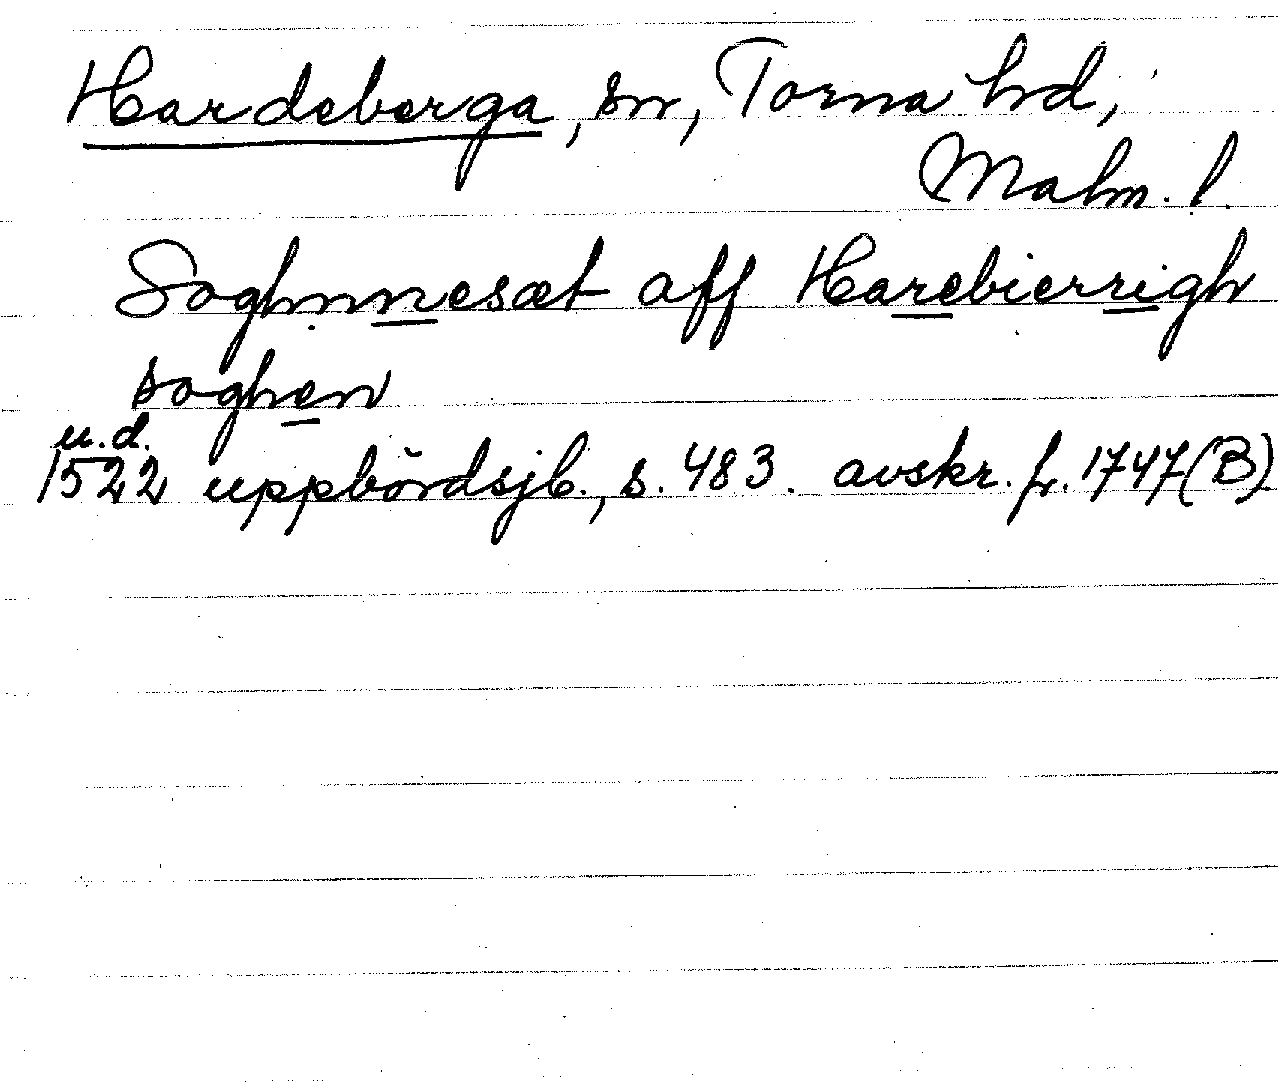 Hardeberga, sn, Torna hd,
Malm. l.
Soghnnesæt aff Harebierrigh
soghen
u.d.
1522 uppbördsjb., s. 483. avskr. fr. 1747(B)